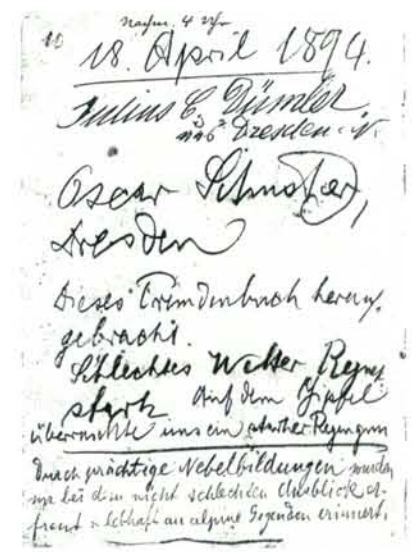 Nachm. 4 Uhr
18. April 1894.
Julius E. Dümler
aus Dresden-N.
Oscar Schuster,
Dresden
Dieses Fremdenbuch herauf-
gebracht.
Schlechtes Wetter Regen
stark Auf dem Gipfel
überraschte uns ein starker Regenguss
Durch prächtige Nebelbildungen wurden
wir bei dem nicht schlechten Ausblick er-
freut u lebhaft an alpine Gegenden erinnert.